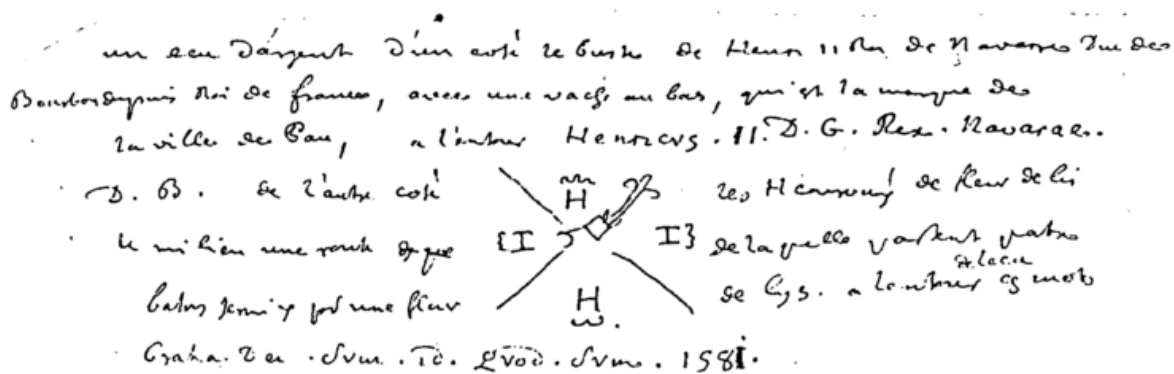 un ecu d'argent d'un costé le buste de Henri II Roi de Navarre Duc de
Bourbon depuis Roi de france, avec une vache au bas, qui est la marque de
la ville de Pau, a l'entour Henricvs . II. D. G. Rex. Navarae.
D. B. de l'autre costé H les H de fleur de lis
le milieu une {I I} de laquelle partent quatre
batons une fleur H de lys. a lentour mots
Gratia. Dei . Svm . Id . Qvod . Svm . 1581.